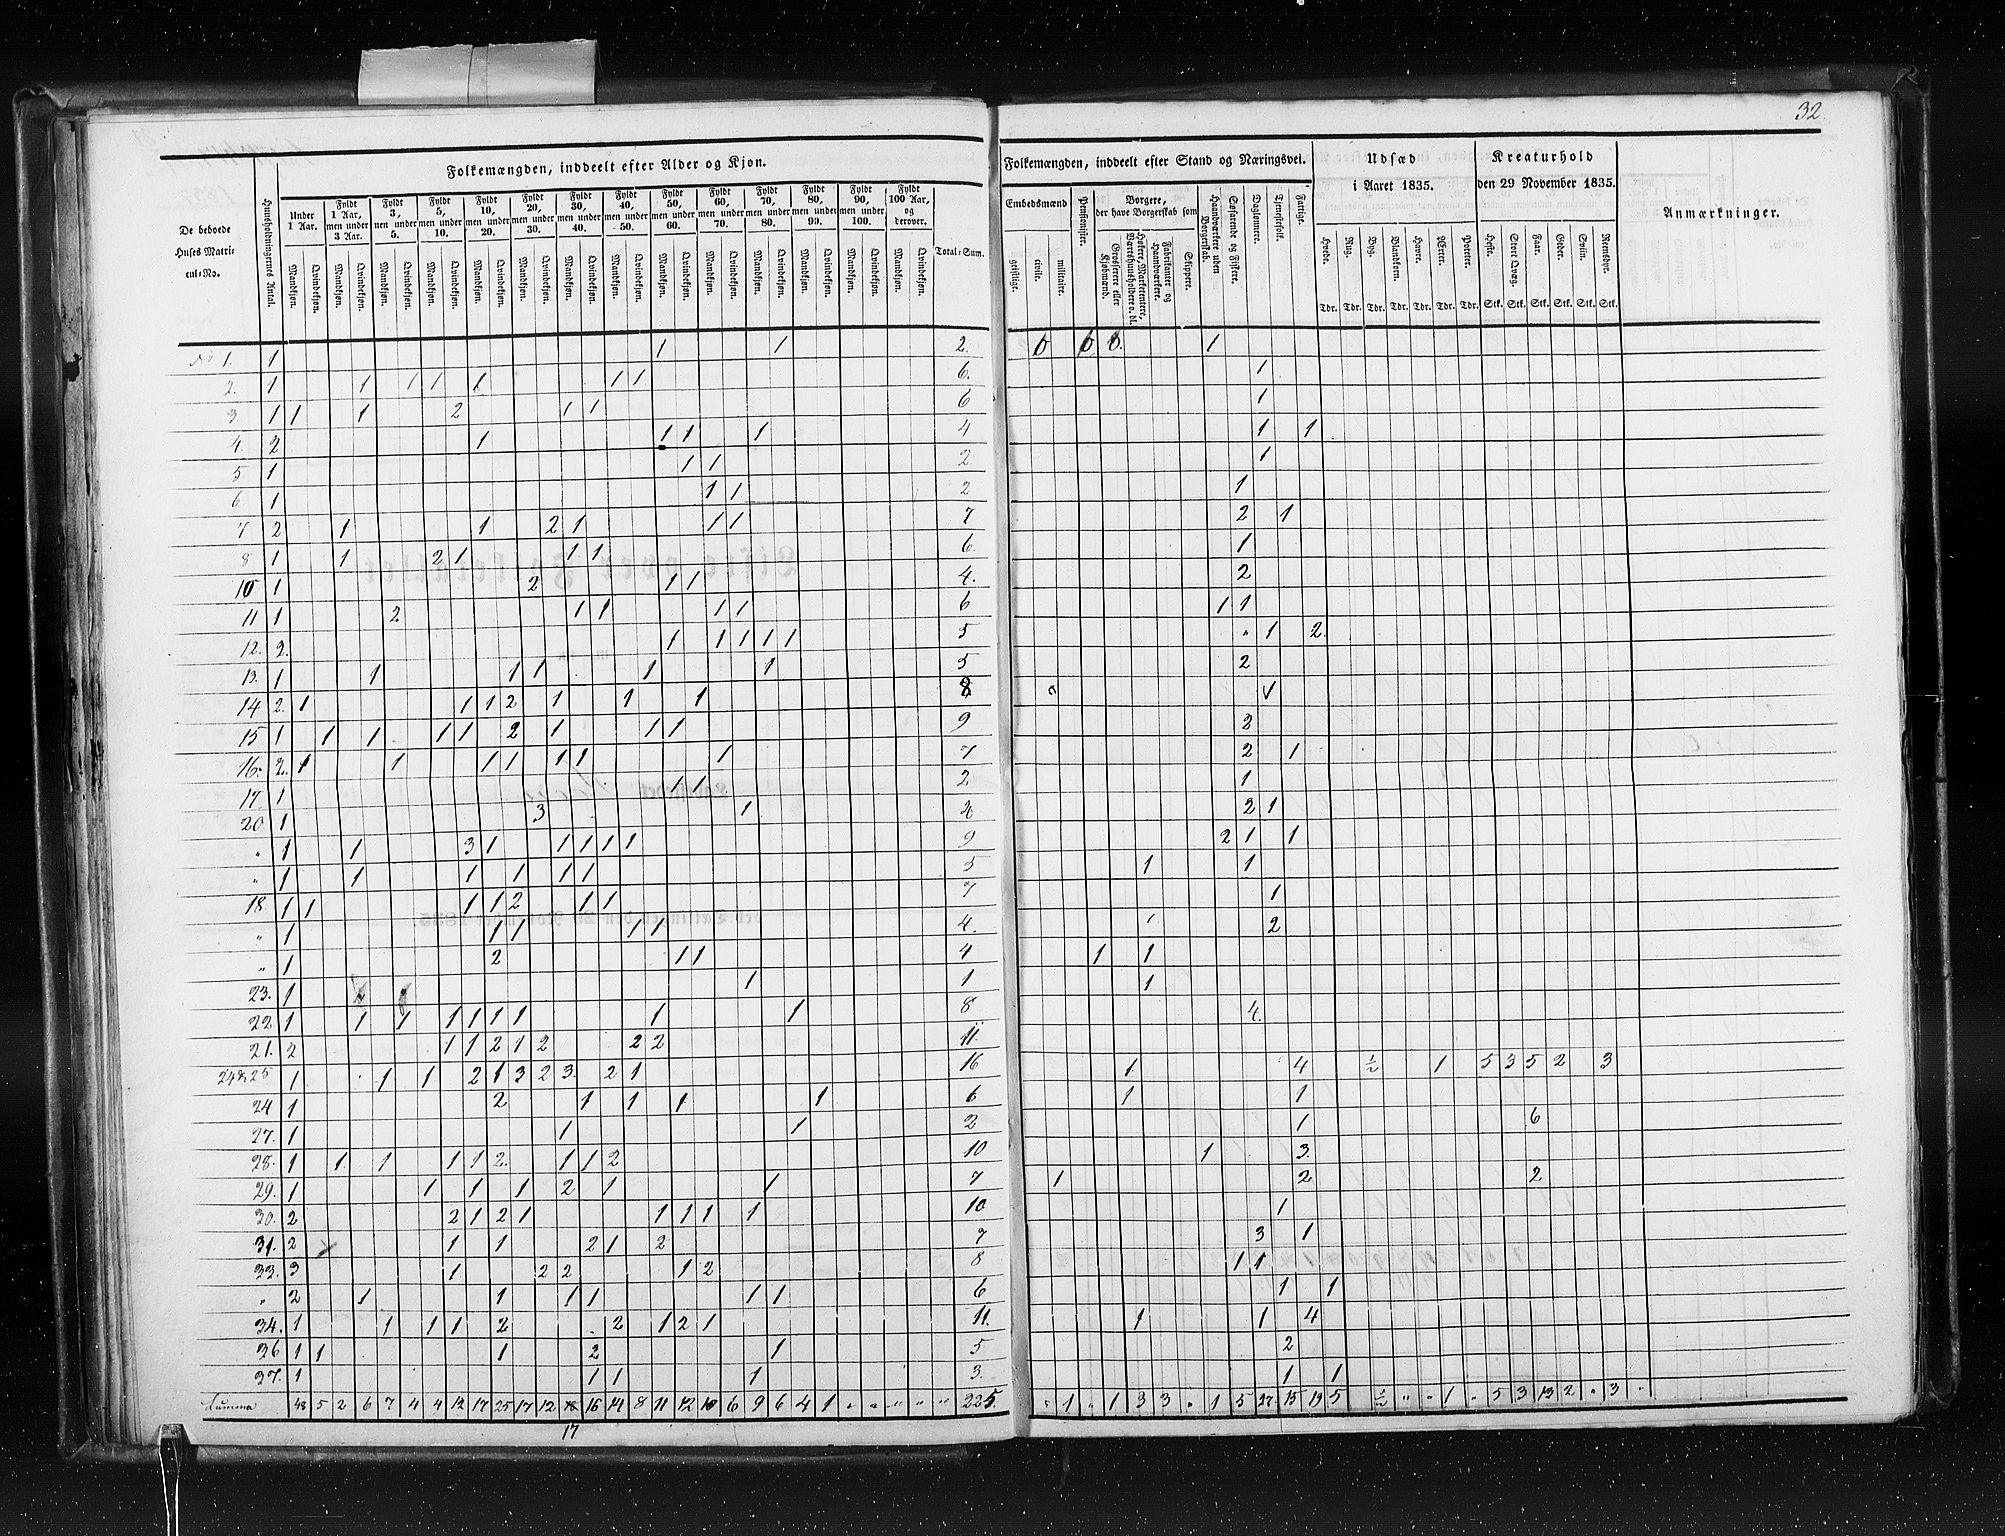 32.
Folkemængden, inddeelt efter Alder og Kjøn.
De beboede Huses Matricul-No.
Huusholdningernes Antal.
Under 1 Aar.
Fyldt 1 Aar, men under 3 Aar.
Fyldt 3, men under 5.
Fyldt 5, men under 10.
Fyldt 10, men under 20.
Fyldt 20, men under 30.
Fyldt 30, men under 40.
Fyldt 40, men under 50.
Fyldt 50, men under 60.
Fyldt 60, men under 70.
Fyldt 70, men under 80.
Fyldt 80, men under 90.
Fyldt 90, men under 100.
Fyldt 100 Aar, og derover.
Total-Sum.
Mandkjøn. Qvindekjøn. Mandkjøn. Qvindekjøn. Mandkjøn. Qvindekjøn. Mandkjøn. Qvindekjøn. Mandkjøn. Qvindekjøn. Mandkjøn. Qvindekjøn. Mandkjøn. Qvindekjøn. Mandkjøn. Qvindekjøn. Mandkjøn. Qvindekjøn. Mandkjøn. Qvindekjøn. Mandkjøn. Qvindekjøn. Mandkjøn. Qvindekjøn. Mandkjøn. Qvindekjøn. Mandkjøn. Qvindekjøn.
Folkemængden, inddeelt efter Stand og Næringsvei.
Embedsmænd
geistlige. civile. militaire.
Pensionister.
Borgere, der have Borgerskab som
Grosserere eller Kjøbmænd.
Høkere, Marketentere, Værtshuusholdere o. dl.
Fabrikanter og Haandværkere.
Skippere.
Haandværkere uden Borgerskab.
Søfarende og Fiskere.
Daglønnere.
Tjenestefolk.
Fattige.
Udsæd i Aaret 1835.
Hvede. Rug. Byg. Blandkorn. Havre. Ærter. Poteter.
Tdr. Tdr. Tdr. Tdr. Tdr. Tdr. Tdr.
Kreaturhold den 29 November 1835.
Heste. Stort Qvæg. Faar. Geder. Sviin. Reensdyr.
Stk. Stk. Stk. Stk. Stk. Stk.
Anmærkninger.
No 1. 1 1 1 2. 1
2. 1 1 1 1 1 1 1 6. 1
3 1 1 1 2 1 1 6 1
4. 2 1 1 1 1 4 1 1
5 1 1 1 2. 1
6 1 1 1 2 1
7 2 1 1 2 1 1 1 7 2 1
8 1 1 2 1 1 1 6. 1
10 1 2 1 1 4. 2
11 1 2 1 1 1 1 6 1 1
12. 2. 1 1 1 1 1 5 " 1 2.
13. 1 1 1 1 1 1 5 2
14 2. 1 1 1 2 1 1 1 8 1
15 1 1 1 1 1 2 1 1 1 9 2
16. 2. 1 1 1 1 1 1 1 7 2 1
17 1 1 1 2 1
20 1 3 1 2 1
" 1 1 3 1 1 1 1 1 9 2 1 1
" 1 1 1 1 1 1 5 1 1
18 1 1 1 1 2 1 1 7 1
" 1 1 1 1 1 4. 1 2
" 1 2 1 1 4 1 1
23. 1 1 1 1
22 1 1 1 1 1 1 1 1 1 8 4.
21. 2 1 1 2 1 2 2 2 11.
24 & 25 1 1 1 2 1 3 2 3. 2 1 16 1 4 ½ 1 5 3 5 2 3
24 1 2 1 1 1 1 6 1 1
27. 1 1 1 2 1 6
28. 1 1 1 1 1 2. 1 1 2 10 1 3.
29. 1 1 1 1 2 1 1 7 1 2 2
30. 2 2 1 2 1 1 1 1 1 10 1
31. 2 1 1 2 1 2 7 3 1
33. 3 1 2 2 1 2 8 1 1
" 2 1 1 1 1 1 1 6 1 1
34. 1 1 1 1 2 2 1 2 1 11. 1 1 4
36 1 1 1 2 1 5 2
37. 1 1 1 1 3. 1 1
Summa 48 5 2 6 7 4 4 12 17 25 17 12 18 16 14 8 11 12 10 6 9 6 4 1 " " " " " 225. " 1 " 1 3 3 " 1 5 27. 15 19 5 ½ " " 1 " 5 3 13 2 " 3 "
17